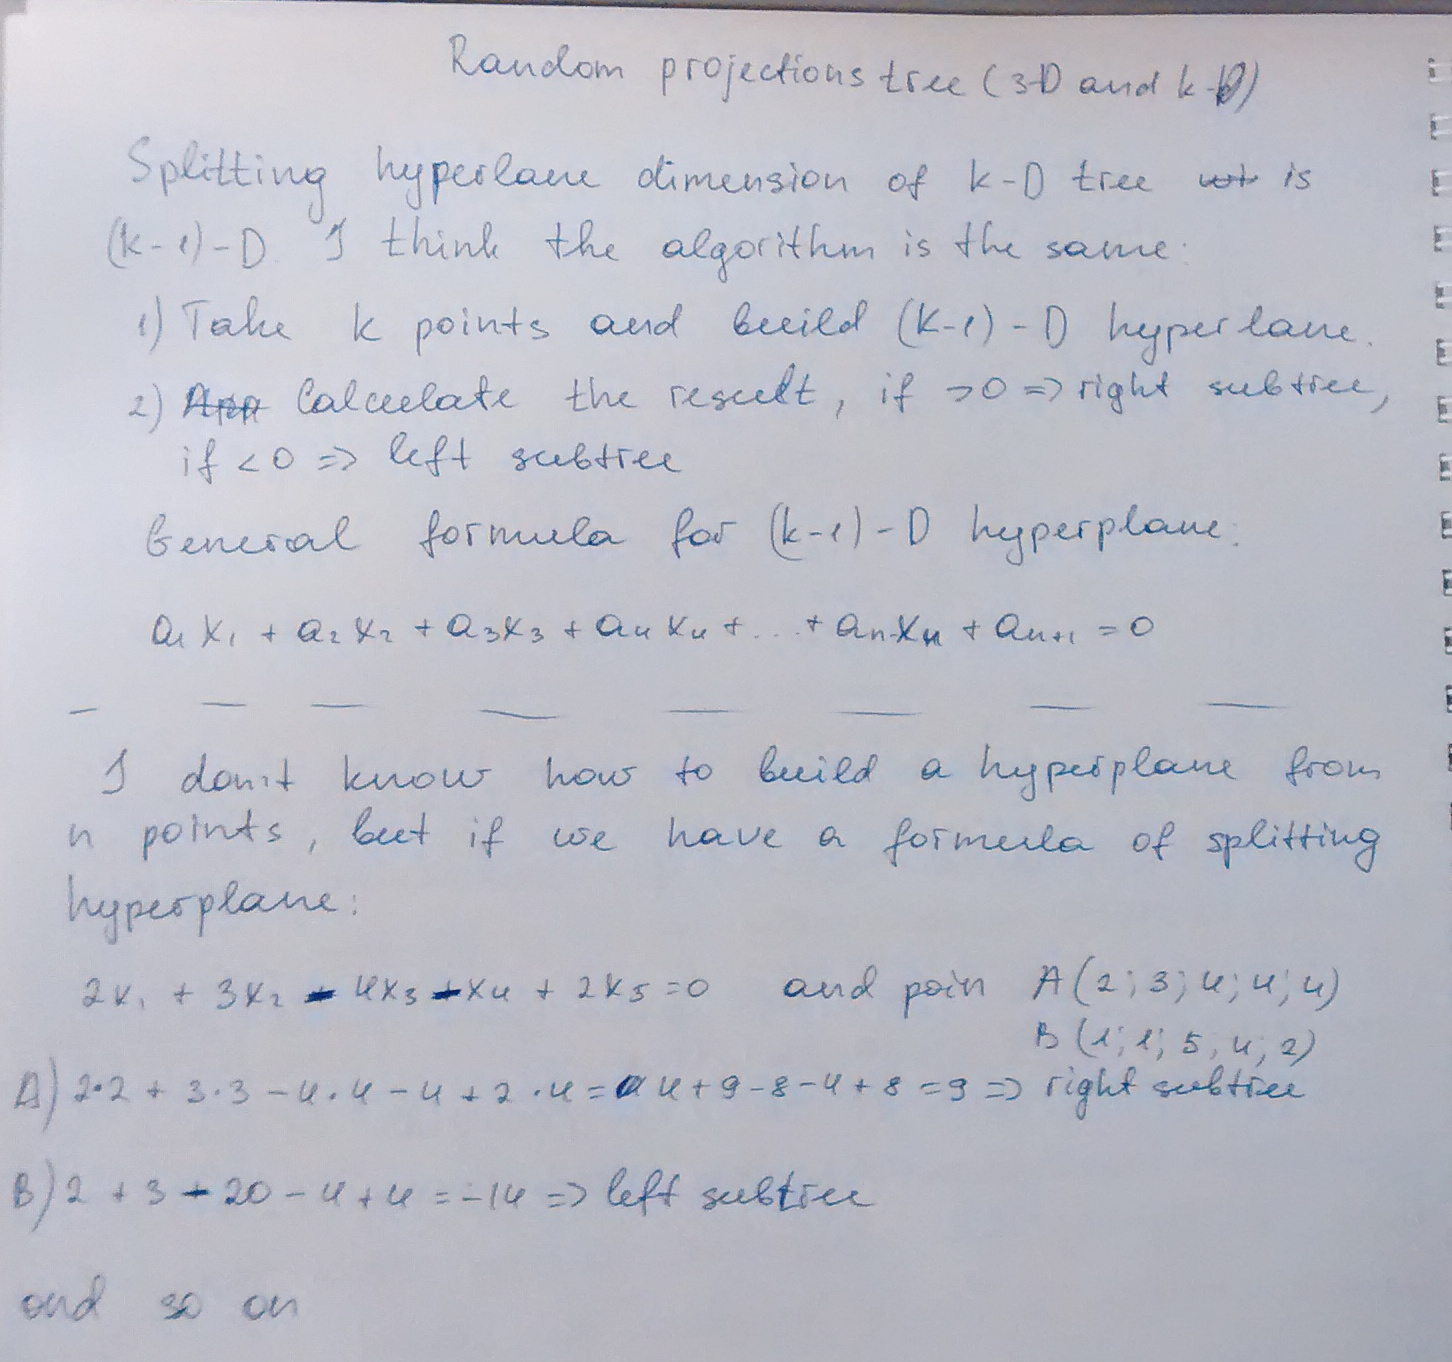 Random projections tree (3-D and k-D)
Splitting hyperlane dimension of k-D tree is
(k-1)-D. I think the algorithm is the same:
1) Take k points and build (k-1)-D hyperlane.
2) Calculate the result, if >0 => right subtree,
if <0 => left subtree
General formula for (k-1)-D hyperplane:
a₁x₁ + a₂x₂ + a₃x₃ + a₄x₄ + ... + aₙxₙ + aₙ₊₁ = 0
I don't know how to build a hyperplane from
n points, but if we have a formula of splitting
hyperplane:
2x₁ + 3x₂ - 4x₃ - x₄ + 2x₅ = 0 and poin A(2; 3; 4; 4; 4)
B(1; 1; 5; 4; 2)
A) 2·2 + 3·3 - 4·4 - 4 + 2·4 = 4 + 9 - 8 - 4 + 8 = 9 => right subtree
B) 2 + 3 - 20 - 4 + 4 = -14 => left subtree
and so on